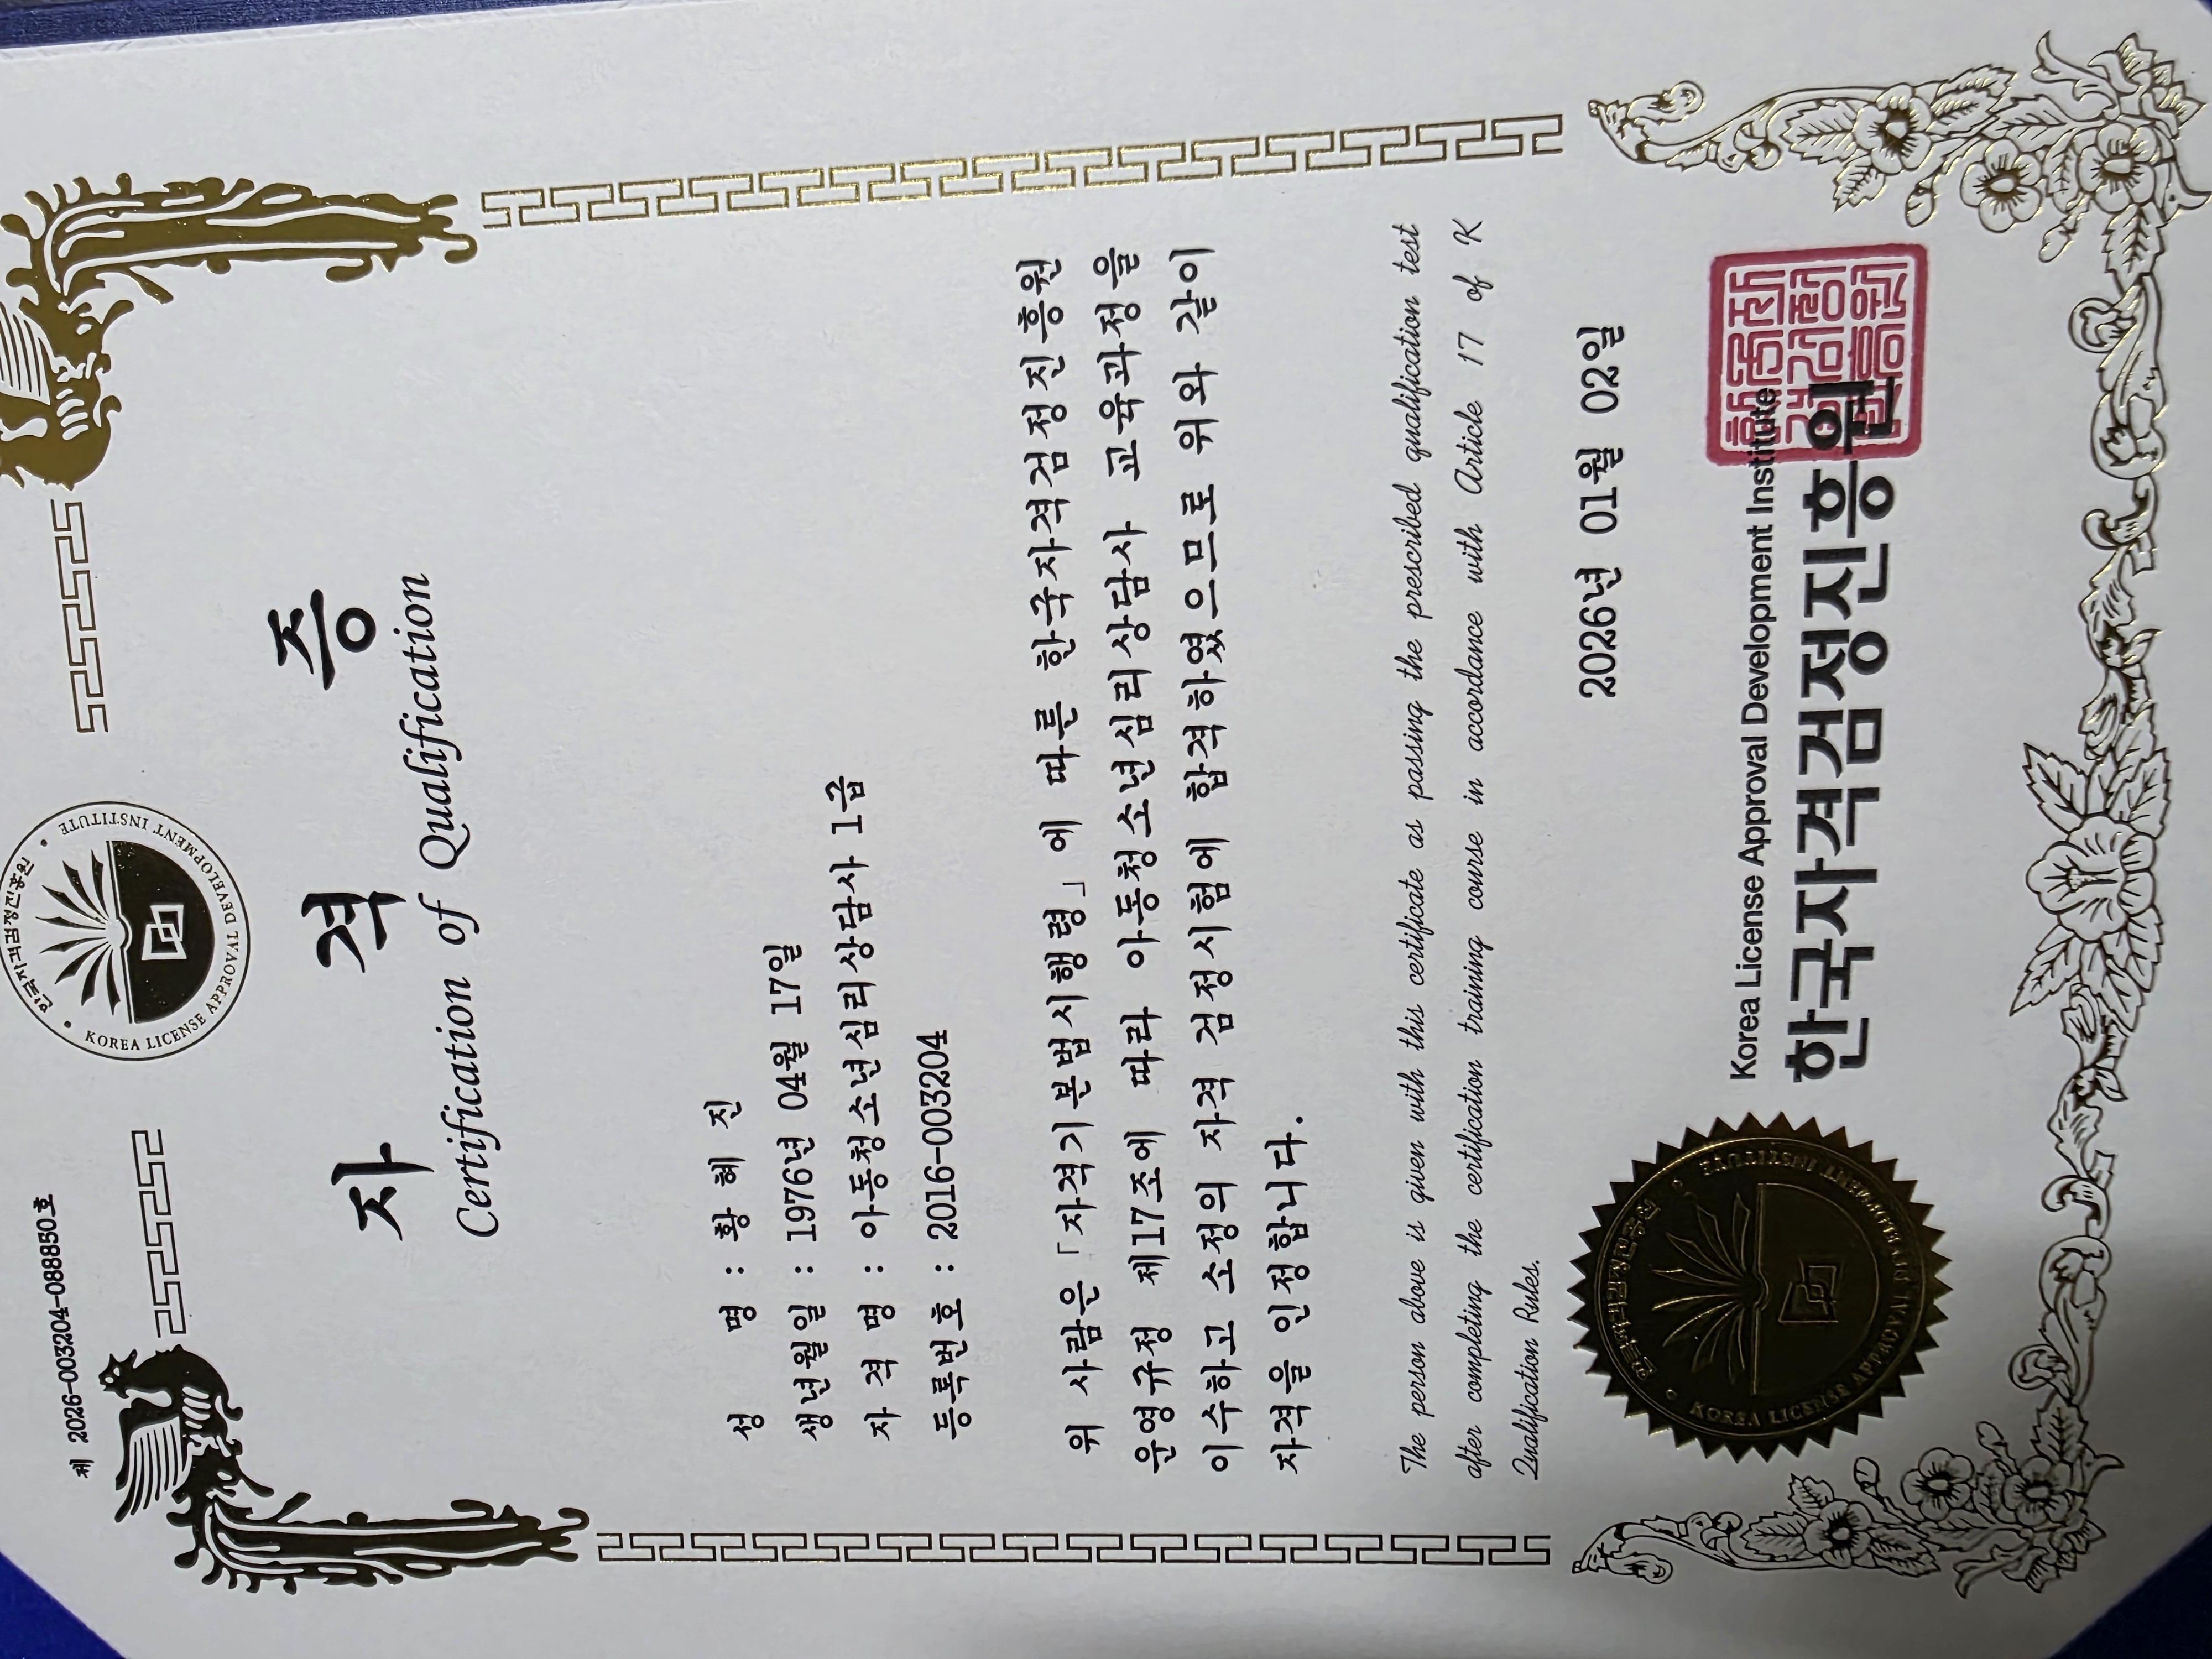 제 2026-003204-088850호
한국자격검정진흥원
KOREA LICENSE APPROVAL DEVELOPMENT INSTITUTE
자 격 증
Certification of Qualification
성 명 : 황 혜 진
생년월일 : 1976년 04월 17일
자 격 명 : 아동청소년심리상담사 1급
등록번호 : 2016-003204
위 사람은 「자격기본법시행령」에 따른 한국자격검정진흥원
운영규정 제17조에 따라 아동청소년심리상담사 교육과정을
이수하고 소정의 자격 검정시험에 합격하였으므로 위와 같이
자격을 인정합니다.
The person above is given with this certificate as passing the prescribed qualification test
after completing the certification training course in accordance with Article 17 of K
Qualification Rules.
2026년 01월 02일
Korea License Approval Development Institute
한국자격검정진흥원
한국자격검정진흥원
KOREA LICENSE APPROVAL DEVELOPMENT INSTITUTE